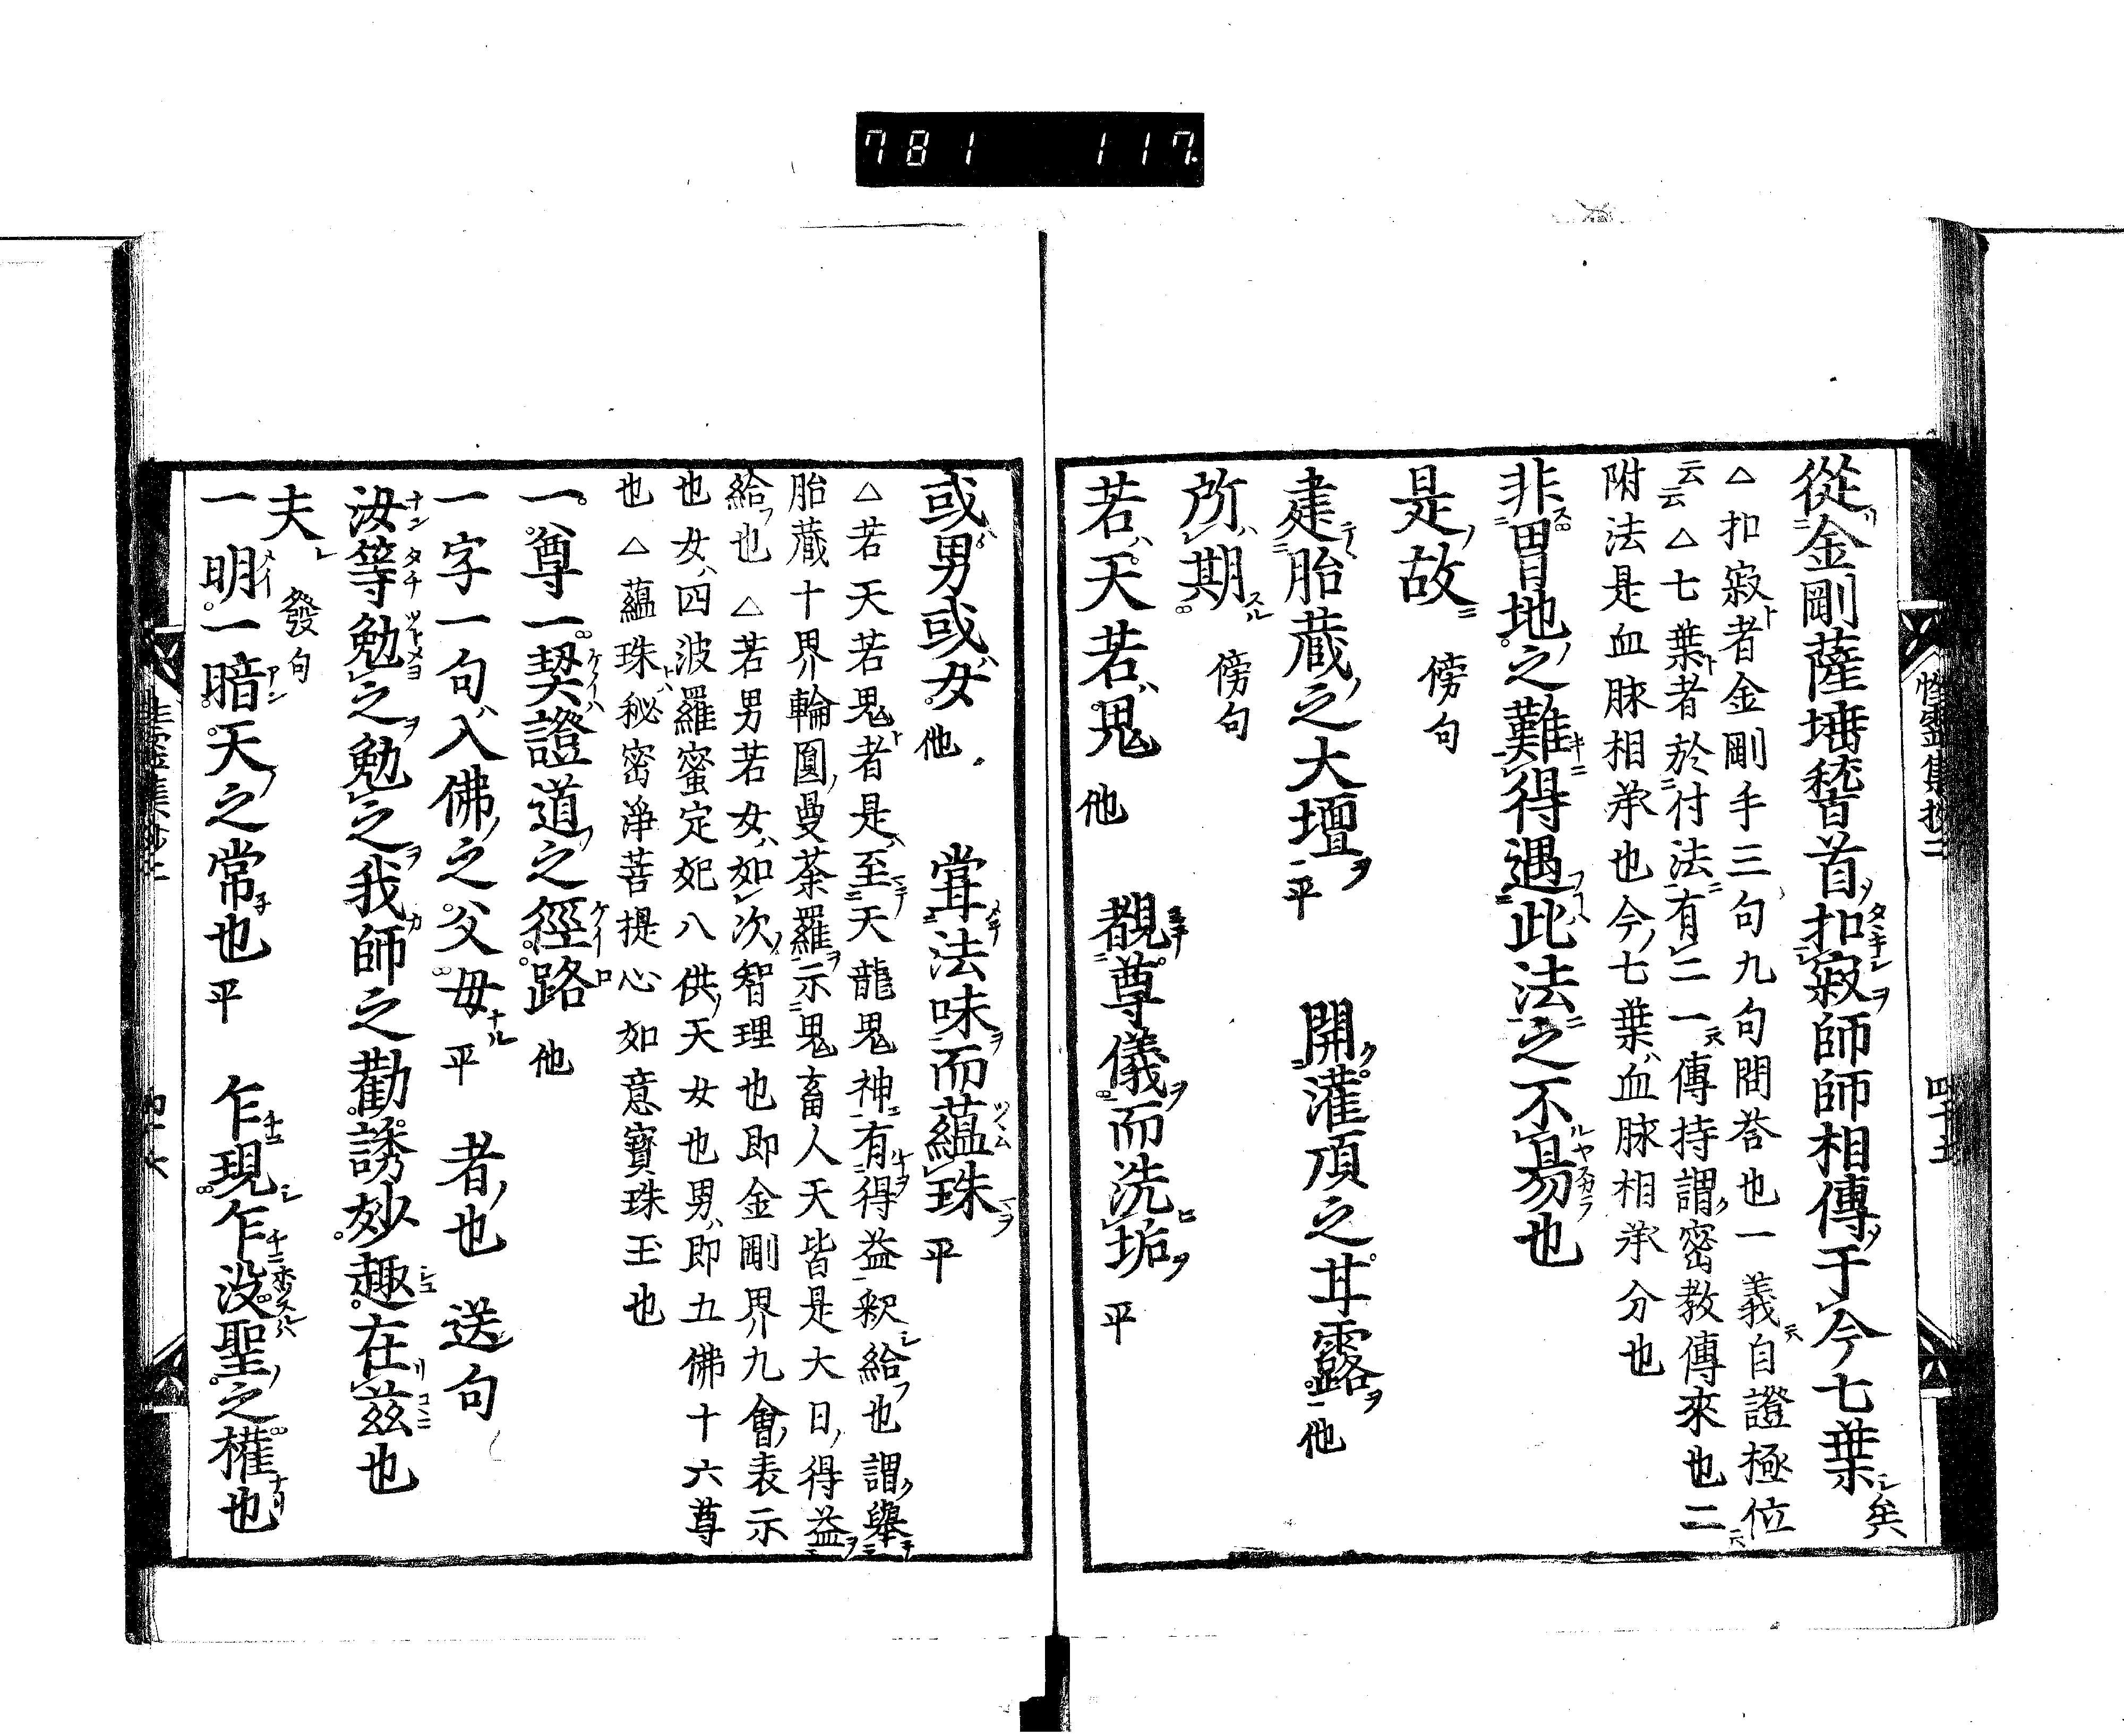 781 117.
從金剛薩埵稽首扣寂師師相傳于今七葉矣
△扣寂者金剛手三句九句問荅也一義云自證極位
云云△七葉者於付法有二一云傳持謂密教傳來也二云
附法是血脉相承也今七葉血脉相承分也
非胃地之難得遇此法之不易也
是故 傍句
建胎蔵之大壇 平 開灌頂之甘露 他
所期 傍句
若天若鬼 他 覩尊儀而洗垢 平
或男或女 他 甞法味而蘊珠 平
△若天若鬼者是至天龍鬼神有得益釈給也謂舉
胎蔵十界輪圓曼荼羅示鬼畜人天皆是大日得益
給也 △若男若女如次智理也即金剛界九會表示
也女四波羅蜜定妃八供天女也男即五佛十六尊
也△蘊珠秘密淨菩提心如意寳珠玉也
一尊一契證道之徑路 他
一字一句入佛之父母 平 者也 送句
汝等勉之勉之我師之勸誘妙趣在茲也
夫 發句
一明一暗天之常也 平 乍現乍没聖之權也